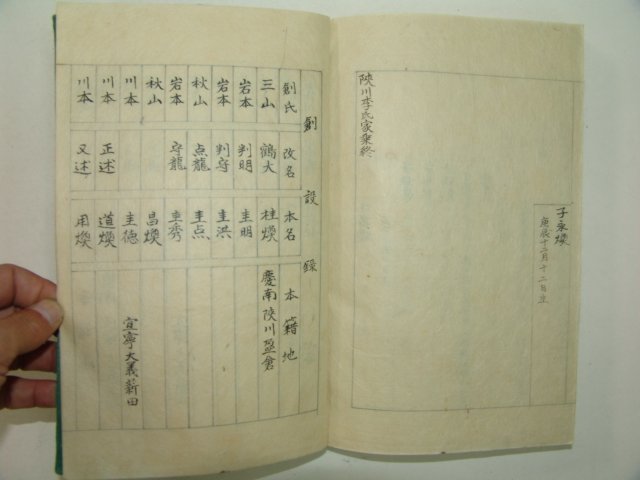 子永煥
庚辰十二月十二日生
陜川李氏家乗終
創設録
創氏 改名 本名 本籍地
三山 鶴大 桂煥 慶南陜川盈倉
岩本 判明 圭明
岩本 判守 圭洪
秋山 点龍 圭点
岩本 守龍 圭秀
秋山 昌煥
川本 圭徳 宜寧大義新田
川本 正述 道煥
川本 又述 用煥